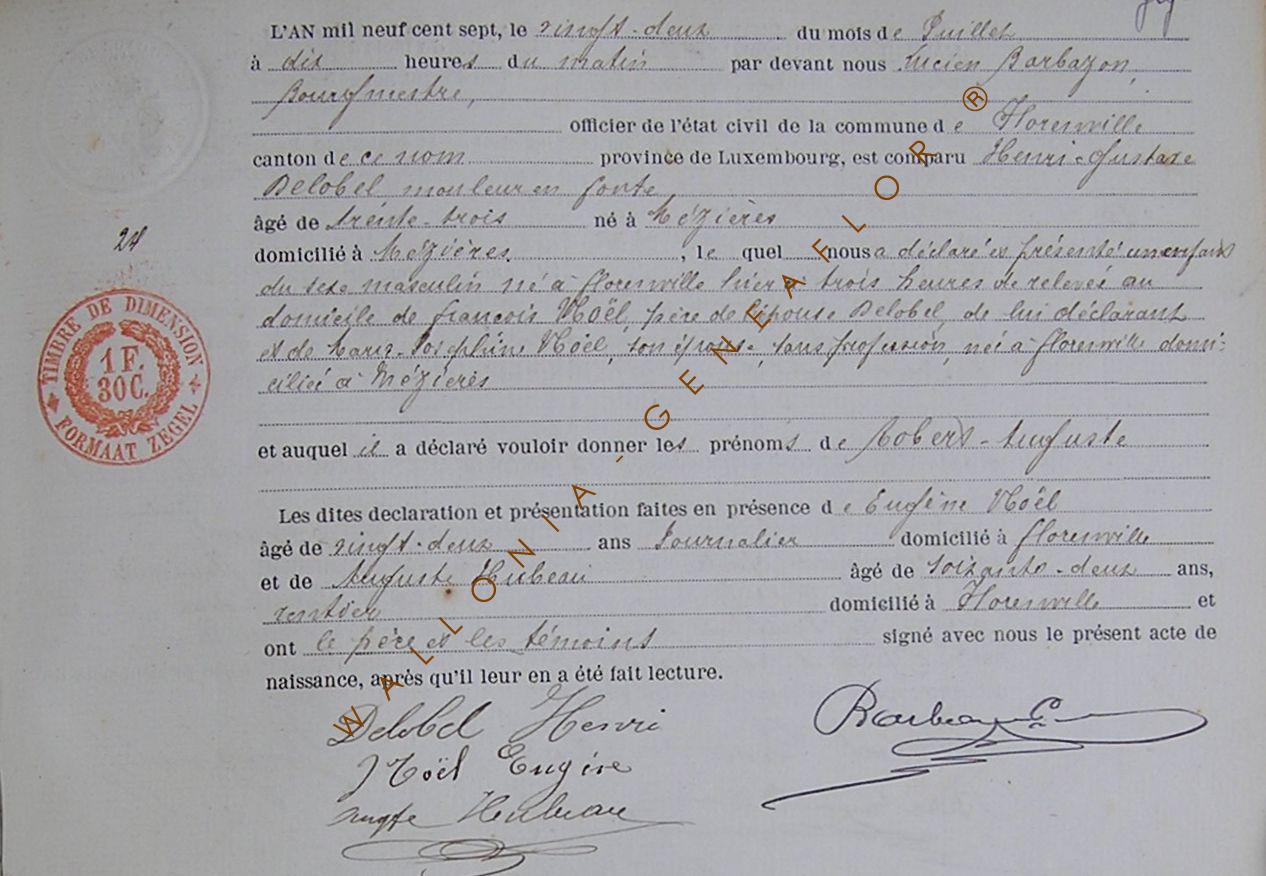 L'AN mil neuf cent sept, le vingt-deux du mois de Juillet
à dix heures du matin par devant nous Lucien Barbazon,
Bourgmestre,
officier de l'état civil de la commune de Florenville
canton de ce nom province de Luxembourg, est comparu Henri-Gustave
Delobel mouleur en fonte
âgé de trente-trois né à Mézières
24
domicilié à Mézières, le quel nous a déclaré et présenté un enfant
du sexe masculin né à florenville hier à trois heures de relevée au
domicile de françois Noël, père de l'épouse Delobel, de lui déclarant
et de Marie-Joséphine Noël, son épouse, sans profession, née à florenville domi-
ciliée à Mézières
TIMBRE DE DIMENSION
1 F.
30C.
FORMAAT ZEGEL
et auquel il a déclaré vouloir donner les prénoms de Robert-Auguste
Les dites declaration et présentation faites en présence de Eugène Noël
âgé de vingt-deux ans Journalier domicilié à florenville
et de Auguste Hubeau âgé de soixante-deux ans,
rentier domicilié à Florenville et
ont le père et les témoins signé avec nous le présent acte de
naissance, après qu'il leur en a été fait lecture.
Delobel Henri
Noël Eugène
Hubeau
WALLONIA - GENEAFLOR ®